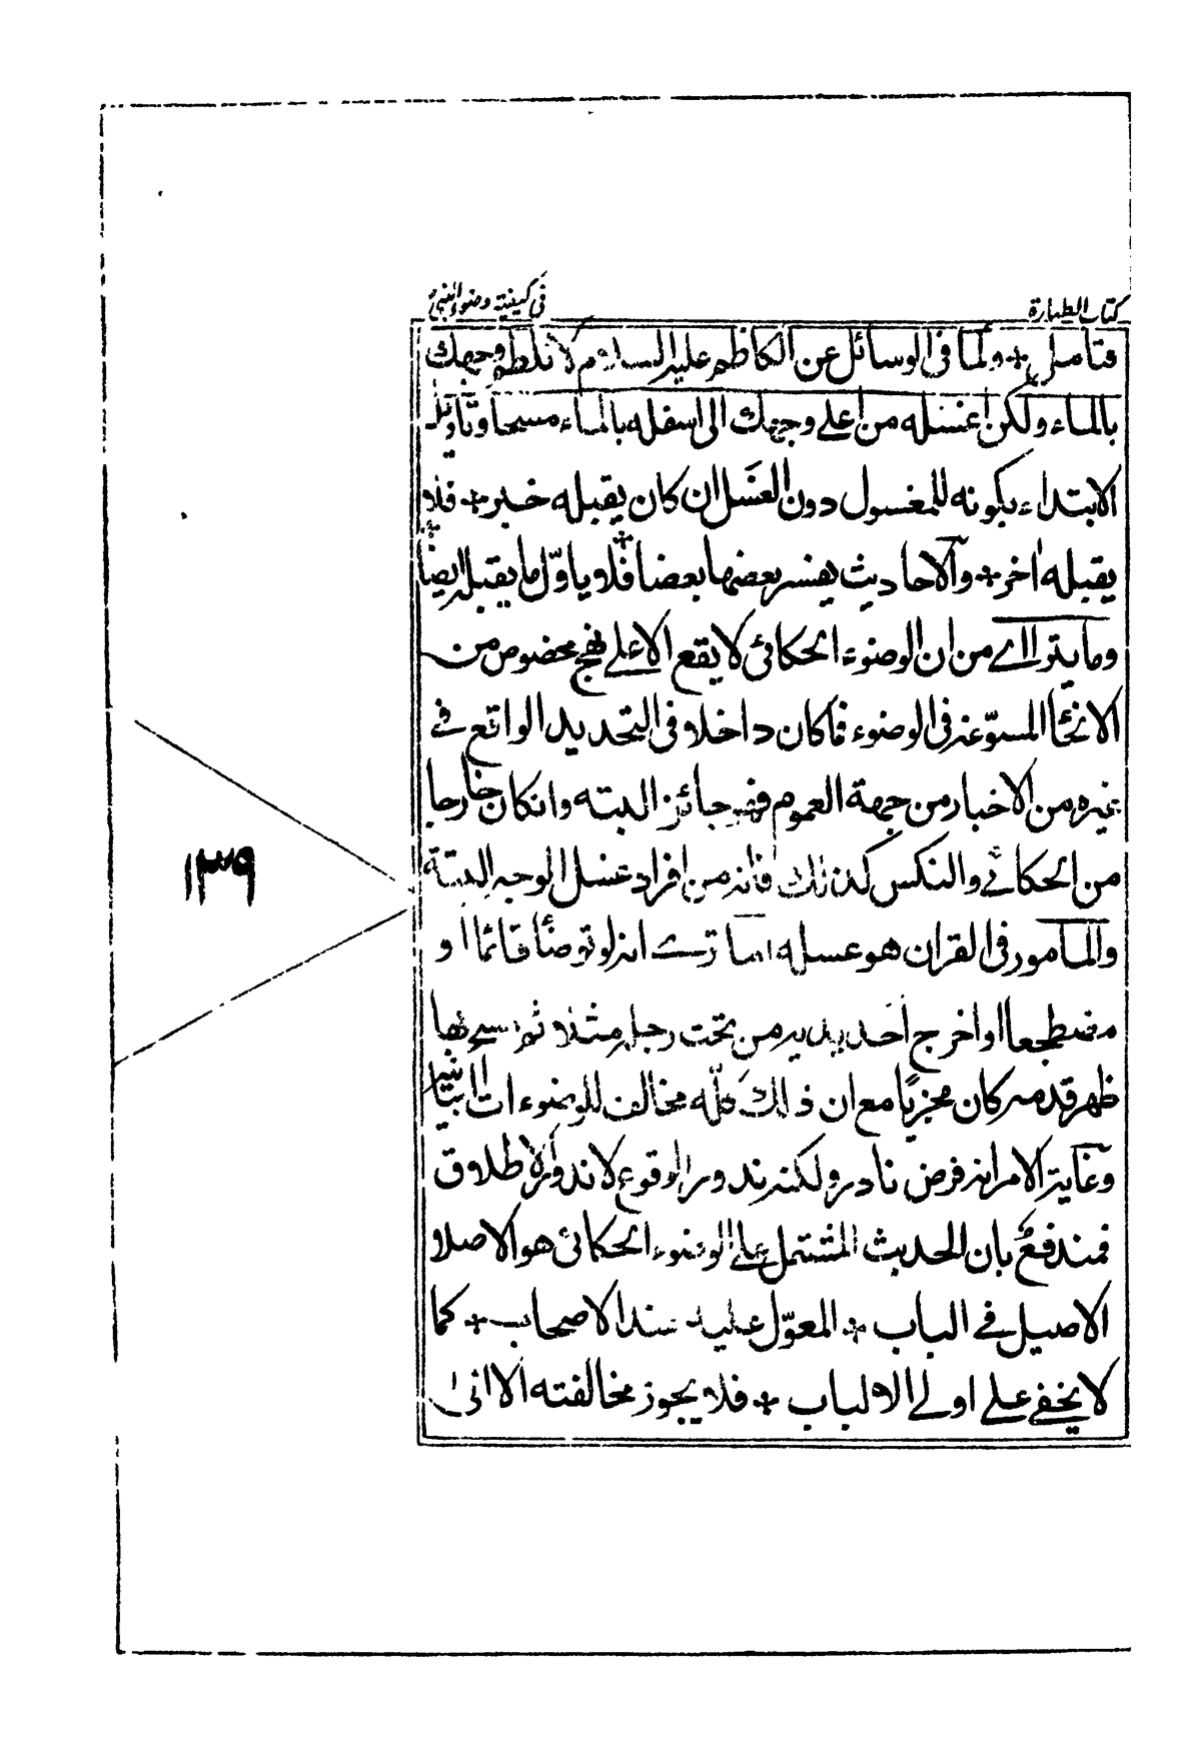 كتاب الطهارة
في كيفية وضوء النبي
فتامل + ولما في الوسائل عن الكاظم عليه السلام لا تلطم وجهك
بالماء ولكن اغسله من اعلى وجهك الى اسفله بالماء مسحا وتاويل
الابتداء بكونه للمغسول دون الغسل ان كان يقبله خبر + فلا
يقبله اخر + والاحاديث يفسر بعضها بعضا + فلا ياوّل ما يقبله ايضا
وما يتراءى من ان الوضوء الحكائي لا يقع الا على نهج مخصوص من
الانحاء المسوّغة في الوضوء فما كان داخلا في التحديد الواقع في
غيره من الاخبار من جهة العموم فهو جائز البته وانكان خارجا
من الحكائي والنكس كذلك فانه من افراد غسل الوجه البتة
والمامور في القران هو غسله اما ترى انه لو توضأ قائما او
مضطجعا او اخرج احد يديه من تحت رجله مثلا ثم مسح بها
ظهر قدمه كان مجزيا مع ان ذلك كله مخالف للوضوءات البيانية
وغاية الامر انه فرض نادر ولكنه ندور الوقوع لا ندور الاطلاق
فمندفع بان الحديث المشتمل على الوضوء الحكائي هو الاصل و
الاصيل في الباب + المعوّل عليه عند الاصحاب + كما
لا يخفى على اولى الالباب + فلا يجوز مخالفته الا انى
١٣٩